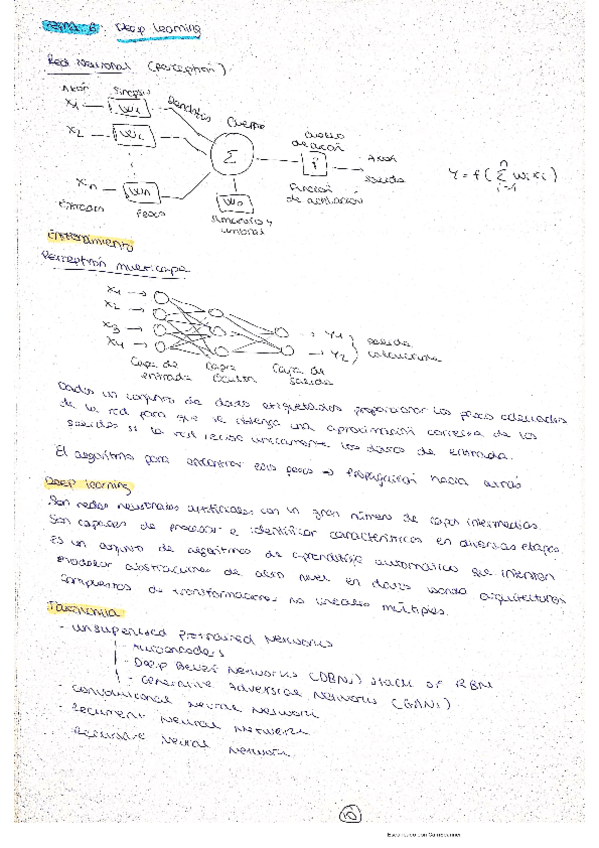 Tema 6: Deep Learning
Red Neuronal (perceptrón)
Axón Sinapsis Dendritas Cuerpo
X1 W1
X2 W2
Xn Wn
Entradas Pesos
Σ
W0
umbral
f
Función de activación
Axón
salida
Y = f( Σ wi xi )
n
i=1
Entrenamiento
Perceptrón multicapa
X1
X2
X3
X4
Y1
Y2
salida
Capa de entrada
Capa oculta
Capa de salida
Dados un conjunto de datos etiquetados proporcionar los pesos adecuados
de la red para que se obtenga una aproximación correcta de las
salidas si la red recibe únicamente los datos de entrada.
El algoritmo para encontrar esos pesos → Propagación hacia atrás
Deep learning
Son redes neuronales artificiales con un gran número de capas intermedias.
Son capaces de procesar e identificar características en diversas etapas.
Es un conjunto de algoritmos de aprendizaje automático que intentan
modelar abstracciones de alto nivel en datos usando arquitecturas
compuestas de transformaciones no lineales múltiples.
Taxonomía
- Unsupervised Pretrained Networks
- Autoencoders
- Deep Belief Networks (DBNs) stack of RBM
- Generative Adversarial Networks (GANs)
- Convolutional Neural Network
- Recurrent Neural Network
- Recursive Neural Network
10
Escaneado con CamScanner